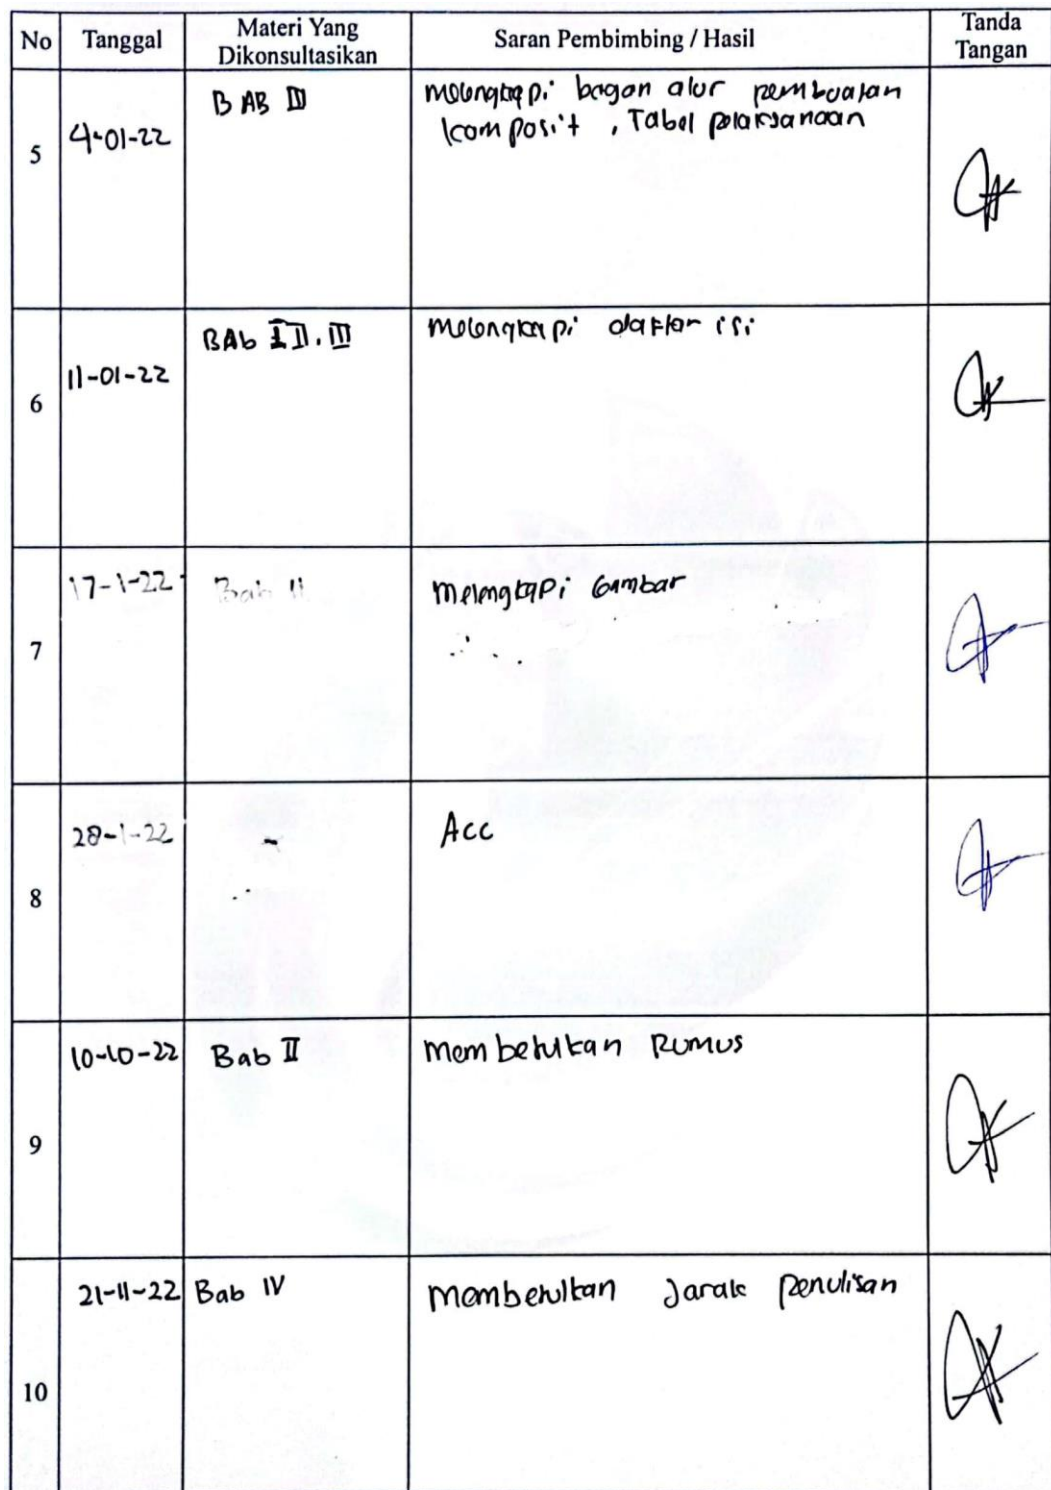 No Tanggal Materi Yang Dikonsultasikan Saran Pembimbing / Hasil Tanda Tangan
5 4-01-22 BAB III melengkapi bagan alur pembuatan
komposit , Tabel pelaksanaan
6 11-01-22 BAb II, III melengkapi daftar isi
7 17-1-22 Bab II melengkapi Gambar
8 28-1-22 - Acc
9 10-10-22 Bab II membetulkan Rumus
10 21-11-22 Bab IV membetulkan Jarak penulisan